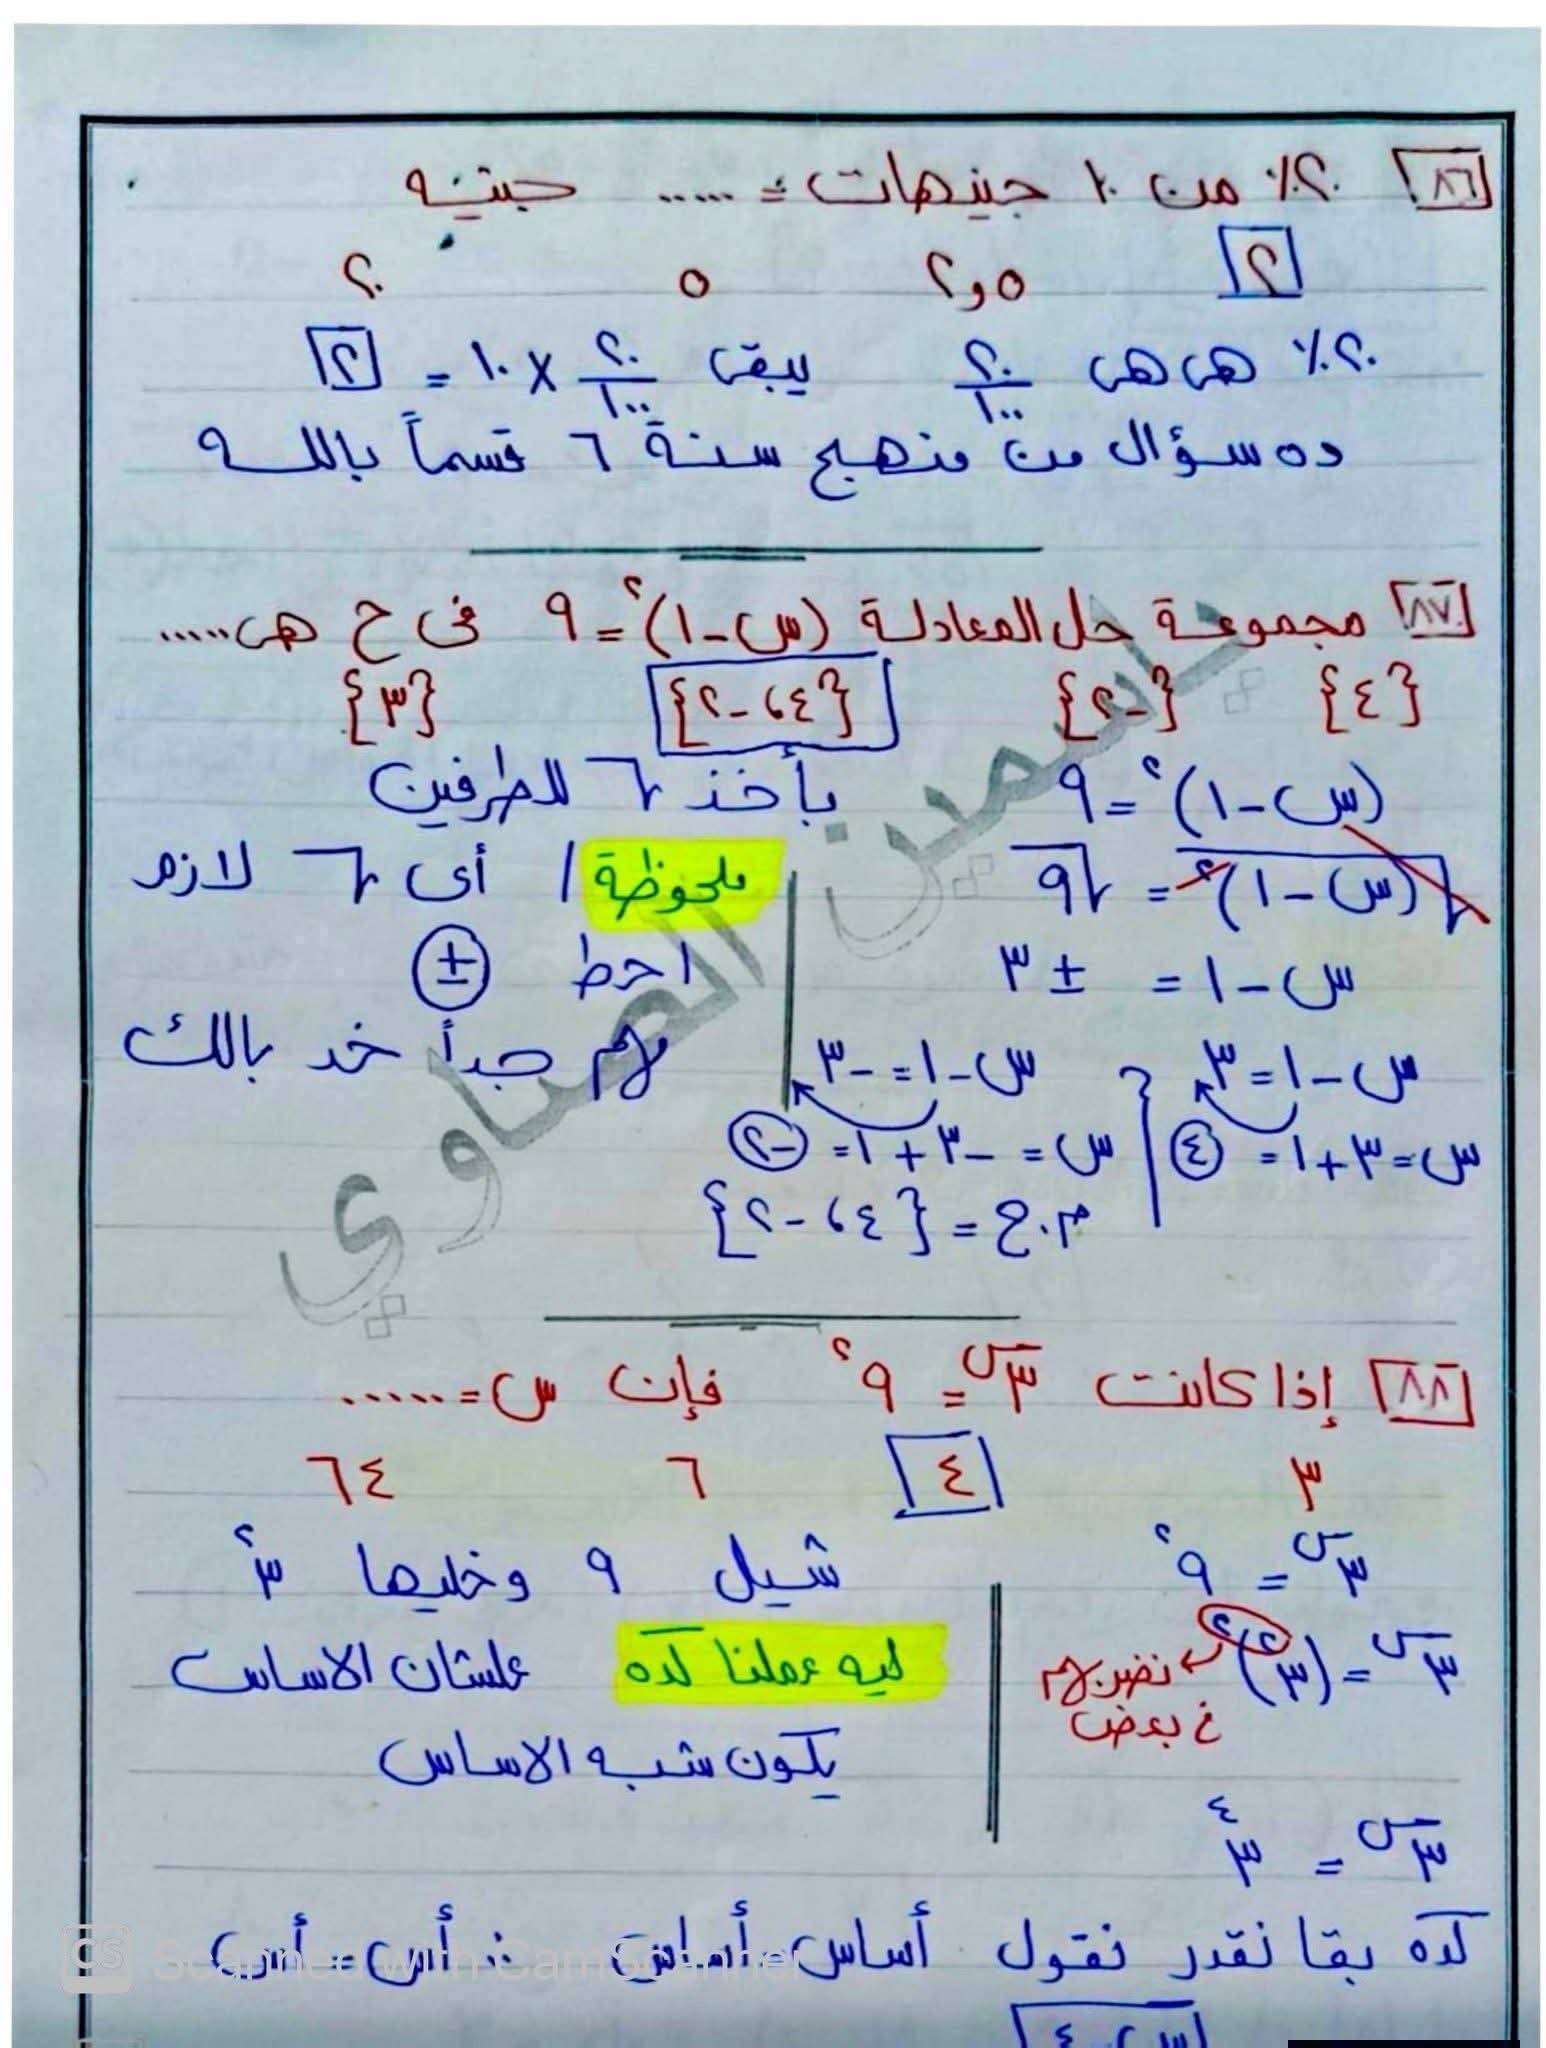 ٨٦ ٢٠٪ من ١٠ جنيهات = ..... جنيه
٢ ٢,٥ ٥ ٢٠
٢٠٪ هى هى ٢٠/١٠٠ يبقى ٢٠/١٠٠ × ١٠ = ٢
ده سؤال من منهج سنة ٦ قسماً بالله
٨٧ مجموعة حل المعادلة (س - ١)² = ٩ فى ح هى .....
{٤} {-٢} {٤، -٢} {٣}
(س - ١)² = ٩ بأخذ √ للطرفين
√(س - ١)² = √٩ ملحوظة / أى √ لازم
س - ١ = ± ٣ احط ±
مهم جداً خد بالك
س - ١ = ٣ س - ١ = -٣
س = ٣ + ١ = ٤ س = -٣ + ١ = -٢
م.ح = {٤، -٢}
ياسمين الصاوي
٨٨ إذا كانت ٣^س = ٩² فإن س = ......
٣ ٤ ٦ ٦٤
٣^س = ٩² شيل ٩ وخليها ٣²
٣^س = (٣²)² نضربهم ليه عملنا كده علشان الاساس
ف بعض
يكون شبه الاساس
٣^س = ٣^٤
كده بقا نقدر نقول أساس = أساس ∴ أس = أس
س = ٤
CS Scanned with CamScanner